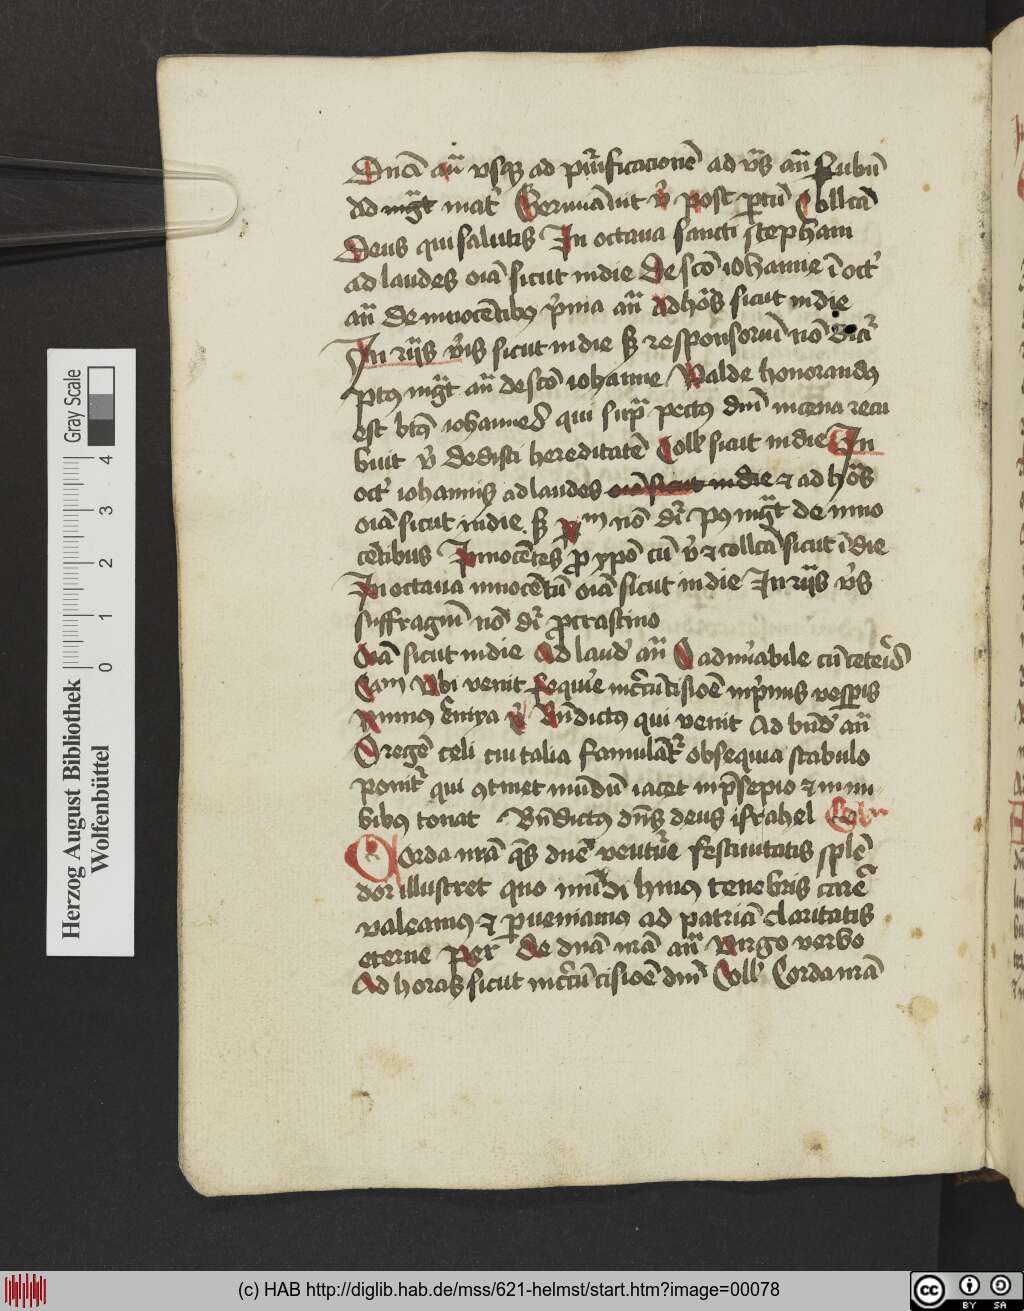 Dnica añ vsq̧ ad purificacionē ad v̄s añ Rubū
Ad mgt̄ mat' Germinauit v̄ post partū Collcā
Deus qui salutis In octaua sancti stephani
ad laudes oīa sicut in die De scō iohanne ī oct'
añ de innocētibus p̄ma añ Ad hōs sicut in die
In ijis v̄is sicut in die sȝ responsoriū nō dicit'
ptus mgt̄ añ de scō iohanne Valde honorandus
est btūs iohannes qui supra pectus dnī in cena recu
buit v̄ dedisti hereditatē Coll sicut in die In
oct' iohannis ad laudes oīa sicut in die ⁊ ad hōs
oīa sicut in die sȝ nō dr̄ post mgt̄ de inno
cētibus Innocētes pro xpō cū v̄ ⁊ collcā sicut ī die
In octaua innocētū oīa sicut in die In ijis v̄is
suffragiū nō dr̄ pcrastino
Oīa sicut in die Ad laud' añ O admirabile cū ceteris
Cam Vbi venit sequūr in circūcisiōe in primis vesperis
v̄ Bndictus qui venit Ad bnd' añ
O regē celi cui talia famulāt' obsequia stabulo
ponit' qui 9tinet mūdū iacet in p̄sepio ⁊ in nu
bibus tonat Bndictus dn̄s deus israhel Coll
Corda nrā q̄s dnē venturē festiuitatis splē
dor illustret quo mūdi huius tenebris carē
valeamus ⁊ pueniamus ad patriā claritatis
eterne per De dnā nrā añ Virgo verbo
Ad horas sicut in circūcisiōe dnī Coll Corda nrā
Herzog August Bibliothek
Wolfenbüttel
Gray Scale
0 1 2 3 4
(c) HAB http://diglib.hab.de/mss/621-helmst/start.htm?image=00078
cc BY SA